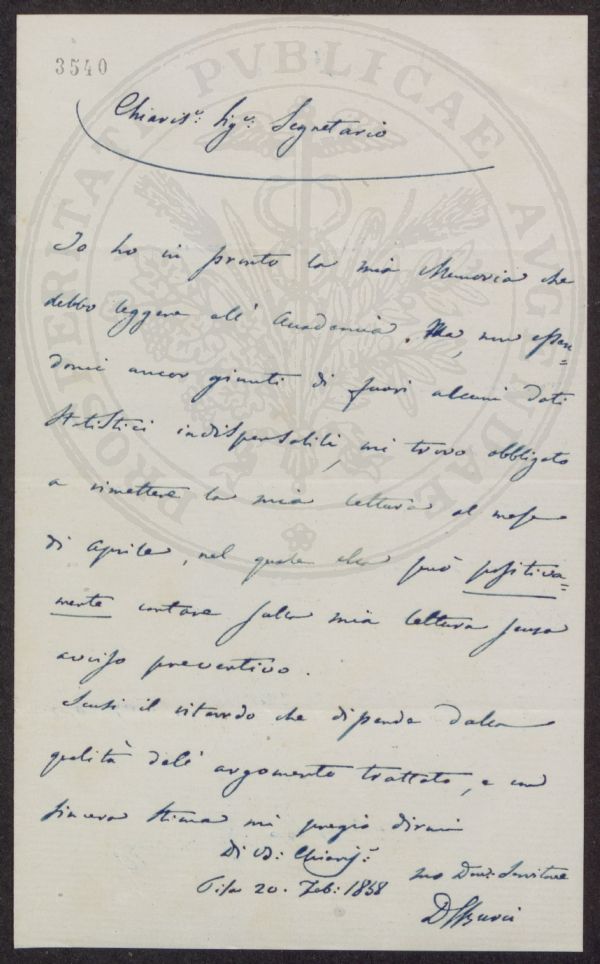 3540
PROSPERITATI PVBLICAE AVGENDAE
Chiaris.º: Sig.ʳ: Segretario
Io ho in pronto la mia Memoria che
debbo leggere all' Accademia. Ma, non essen=
domi ancor giunti di fuori alcuni dati
Statistici indispensabili, mi trovo obbligato
a rimettere la mia lettura al mese
di Aprile, nel quale ella può positiva=
mente contare sulla mia lettura senza
avviso preventivo.
Scusi il ritardo che dipende dalla
qualità dell' argomento trattato, e con
sincera stima mi pregio dirmi
Di VS: Chiaris.ª:
Pisa 20. Feb: 1858
suo Dev: Servitore